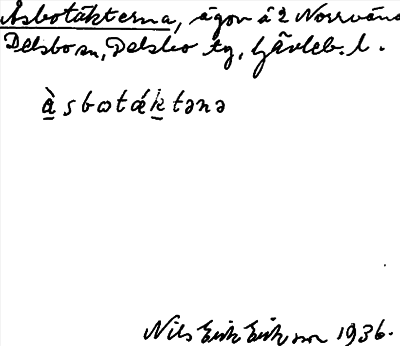 Åsbotäkterna, ägor å 2 Norrväna
Delsbo sn, Delsbo tg, Gävleb. l.
à̱ s b ω t ǽ ḵ t ə n ə
Nils Erik Eriksson 1936.